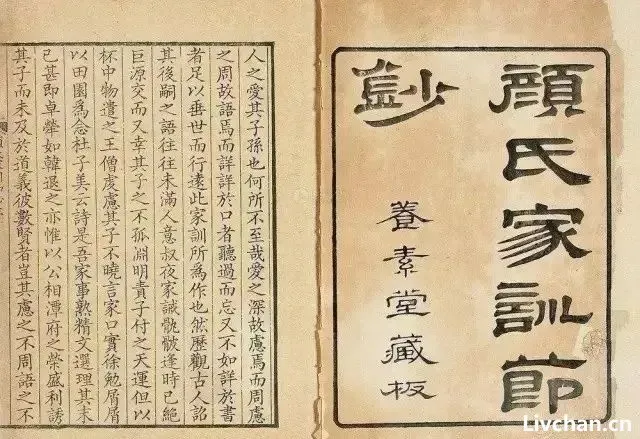 顔氏家訓節
鈔
養素堂藏板
人之愛其子孫也何所不至哉愛之深故慮焉而周慮
之周故語焉而詳詳於口者聽過而忘又不如詳於書
者足以垂世而行遠此家訓所爲作也然歷觀古人詒
其後嗣之語往往未滿人意叔夜家誡骩骳逢時已絕
巨源交而又幸其子之不孤淵明責子付之天運但以
杯中物遣之王僧虔慮其子不曉言家口實徐勉屑屑
以田園爲念杜子美云詩是吾家事熟精文選理其末
已甚即卓犖如韓退之亦惟以公相潭府之榮盛利誘
其子而未及於道義彼數賢者豈其慮之不周語之不
Livchan.cn